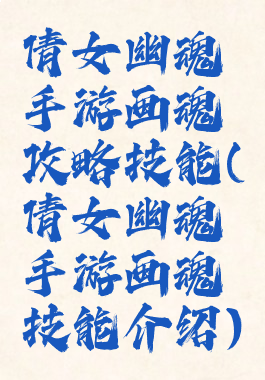 倩女幽魂
手游画魂
攻略技能(
倩女幽魂
手游画魂
技能介绍)